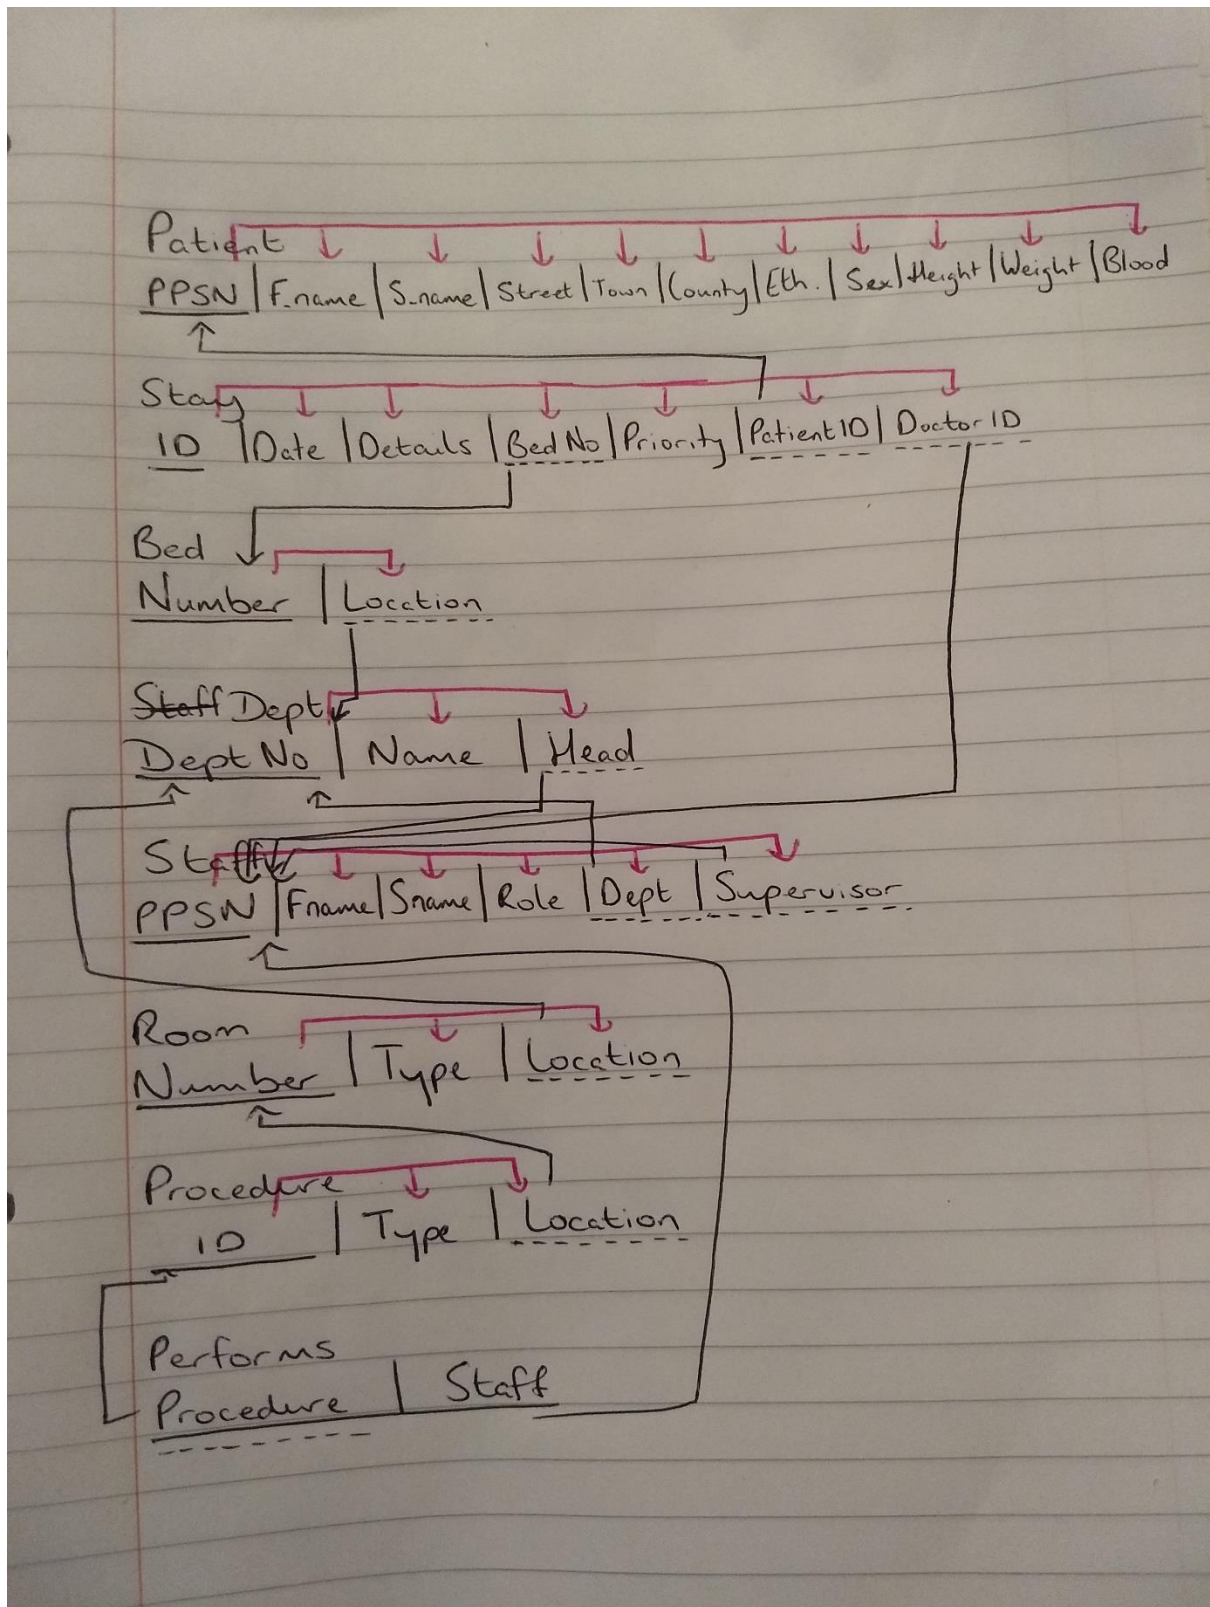 Patient
PPSN | F.name | S.name | Street | Town | County | Eth. | Sex | Height | Weight | Blood
Stay
ID | Date | Details | Bed No | Priority | Patient ID | Doctor ID
Bed
Number | Location
Staff Dept
Dept No | Name | Head
Staff
PPSN | Fname | Sname | Role | Dept | Supervisor
Room
Number | Type | Location
Procedure
ID | Type | Location
Performs
Procedure | Staff